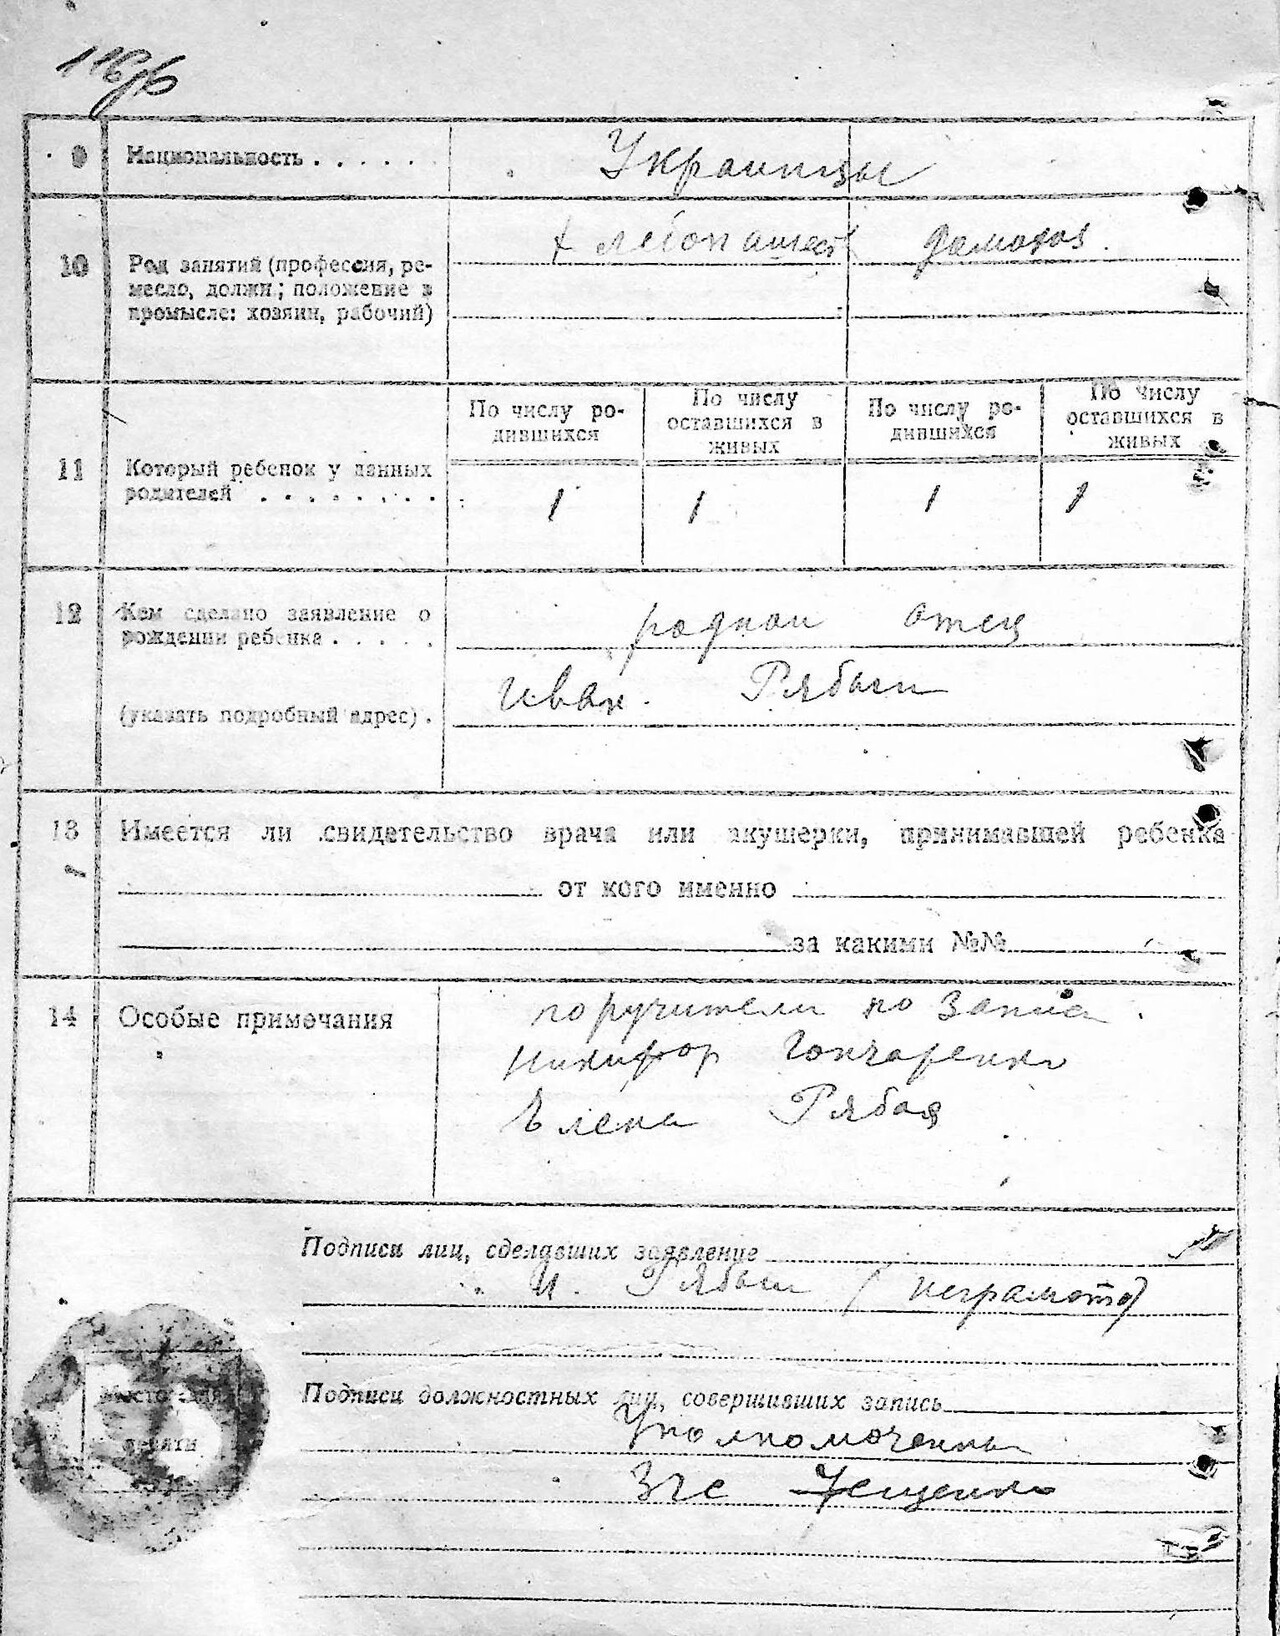 9 Национальность . . . . . . Украинцы
10 Род занятий (профессия, ре-
месло, должн.; положение в
промысле: хозяин, рабочий)
хлебопашест домохоз.
11 Который ребенок у данных
родителей . . . . . . . .
По числу ро-
дившихся
По числу
оставшихся в
живых
По числу ро-
дившихся
По числу
оставшихся в
живых
1 1 1 1
12 Кем сделано заявление о
рождении ребенка . . . . .
(указать подробный адрес) .
родной отец
Иван. Рябый
13 Имеется ли свидетельство врача или акушерки, принимавшей ребенка
от кого именно
за какими №№
14 Особые примечания
поручители по записи.
Никифор Гончаренко
Елена Рябая
Подписи лиц, сделавших заявление
И. Рябый (неграмот)
Подписи должностных лиц, совершивших запись
Уполномоченный
Загс
Место для
печати